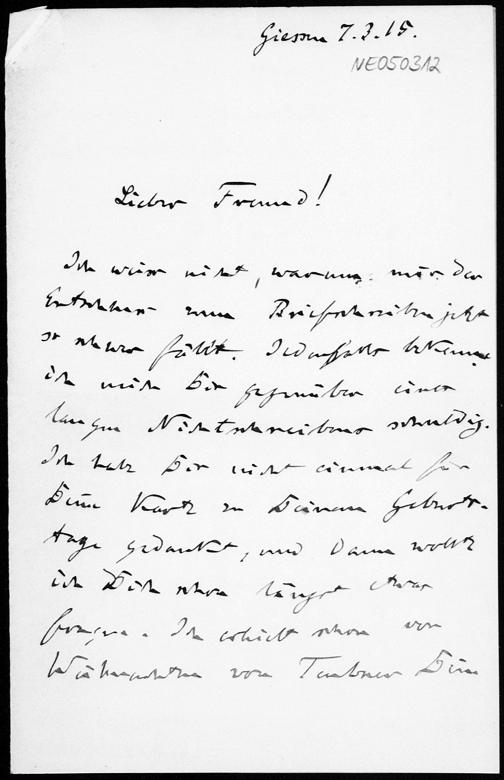 Giessen 7.3.15.
NE050312
Lieber Freund!
Ich weiss nicht, warum mir der
Entschluss zum Briefschreiben jetzt
so schwer fällt. Jedenfalls bekenne
ich mich Dir gegenüber eines
langen Nichtschreibens schuldig.
Ich habe Dir nicht einmal für
Deine Karte zu Deinem Geburts-
tage gedankt, und dann wollte
ich Dich schon längst etwas
fragen. Ich erhielt schon vor
Weihnachten von Teubner Deine